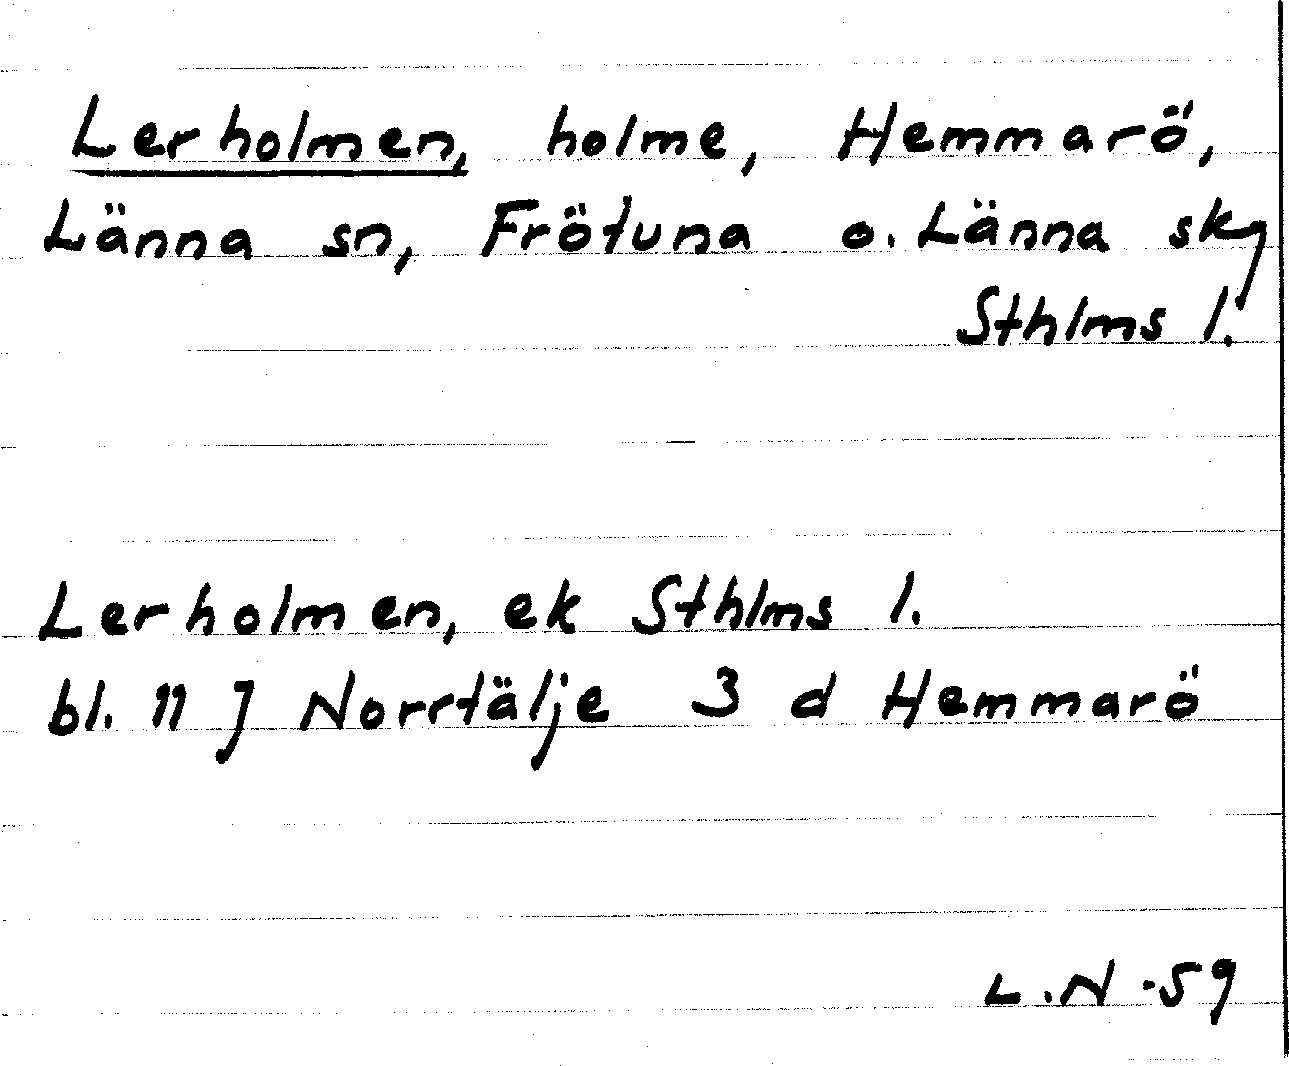 Lerholmen, holme, Hemmarö,
Länna sn, Frötuna o. Länna skg
Sthlms l.
Lerholmen, ek Sthlms l.
bl. 11 J Norrtälje 3 d Hemmarö
L.N -59